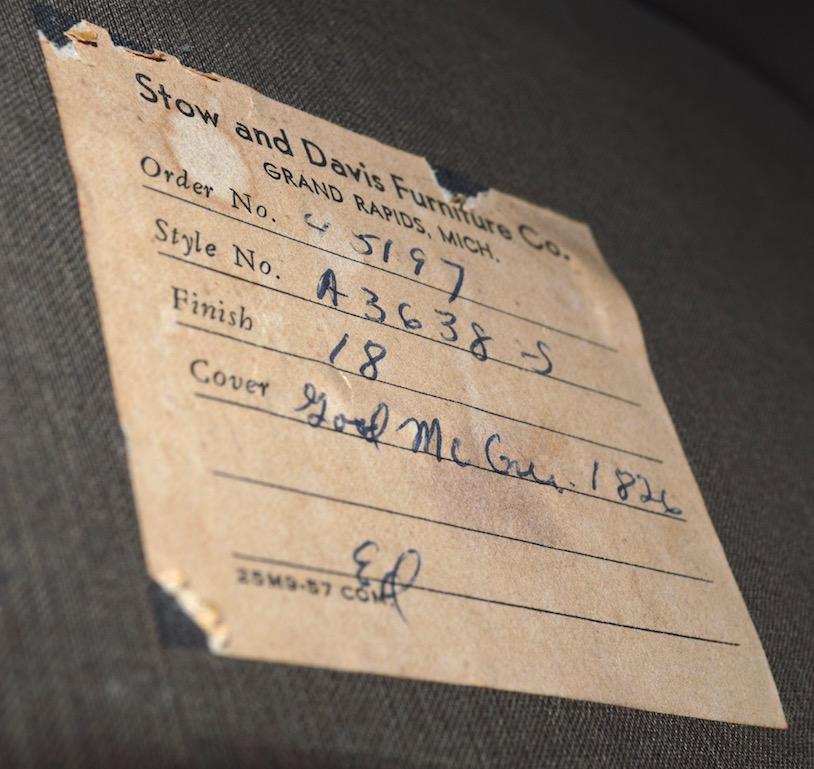 Stow and Davis Furniture Co.
GRAND RAPIDS, MICH.
Order No. 65197
Style No. A3638-S
Finish 18
Cover Good Mc 1826
Ed
25M9-57 COM.